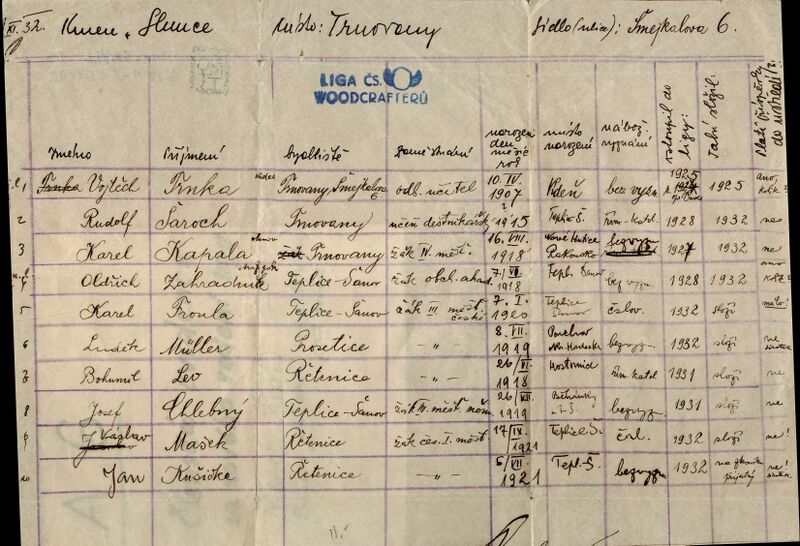 XI. 32. Kmen „Slunce místo: Trnovany Sídlo (ulice): Smejkalova 6.
LIGA ČS.
WOODCRAFTERŮ
Jméno Příjmení Bydliště Zaměstnání narozen den měsíc rok místo narození nábož. vyznání vstoupil do ligy: Tabu složil: Platí příspěvky do ústředí?
1 Vojtěch Trnka Trnovany Smejkalova 6 odb. učitel 10. IV. 1907 Kdeň bez vyzn. 1925 1925 ano,
2 Rudolf Šaroch Trnovany učeň deštnikářský ? 1915 Teplic-Š. řím-katol. 1928 1932 ne
3 Karel Kapala Trnovany žák IV. měšť. 16. VIII. 1918 Rakousko 1927 1932 ne
4 Oldřich Záhradník Teplice-Šanov žák obch. akad. 7/VII. 1918 Tepl. Šanov bezvyzn. 1928 1932 ano
5 Karel Froula Teplice-Šanov žák III. měšť české 7. I. 1920 Teplice Šanov čslov. 1932 složí
6 Luděk Müller Prosetice -„- 8. VII. 1919 bezvyzn. 1932 složí ne
7 Bohumil Lev Řetenice -„- 26/VI. 1918 Hostomice řím. katol 1931 složí ne
8 Josef Chlebný Teplice-Šanov žák III. měšť. něm. 26/XII. 1919 bezvyzn. 1931 složí ne
9 Václav Mašek Řetenice žák čes. I. měšť. 17/IX. 1921 Teplice Š. čsl. 1932 složí ne!
10 Jan Kušička Řetenice -„- 5/VII. 1921 Tepl.-Š. bezvyzn. 1932 přijatý ne!
18.